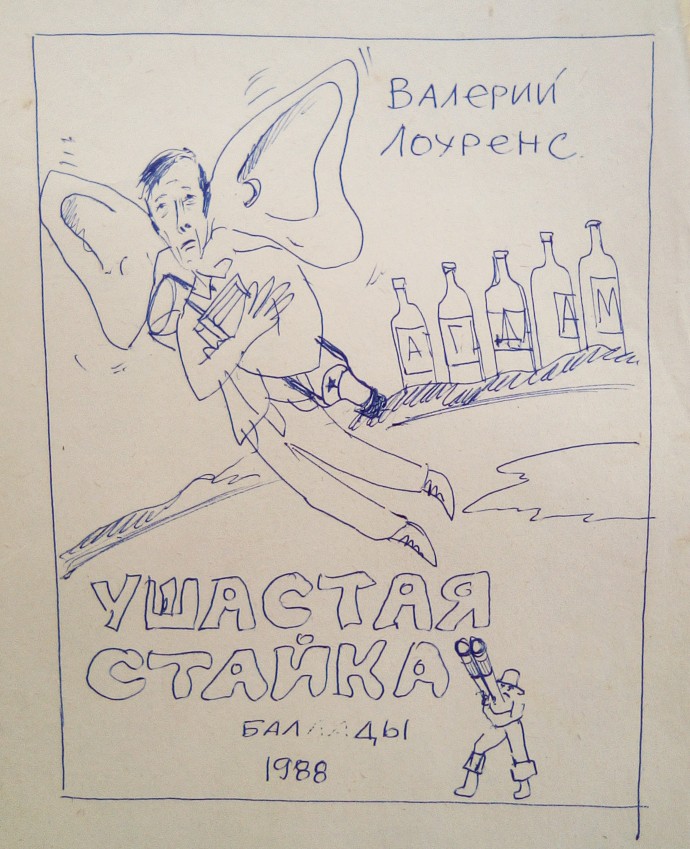 ВАЛЕРИЙ
ЛОУРЕНС.
А Г Д А М
УШАСТАЯ
СТАЙКА
БАЛЛАДЫ
1988